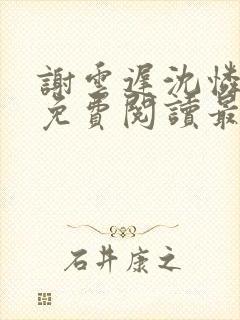 謝雲遲沈憐
免費閱讀最
石井康之